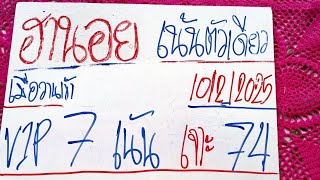 ฮานอย เน้นตัวเดียว
เมื่อวานเข้า 10/2/2025
VIP 7 เน้น เจาะ 74